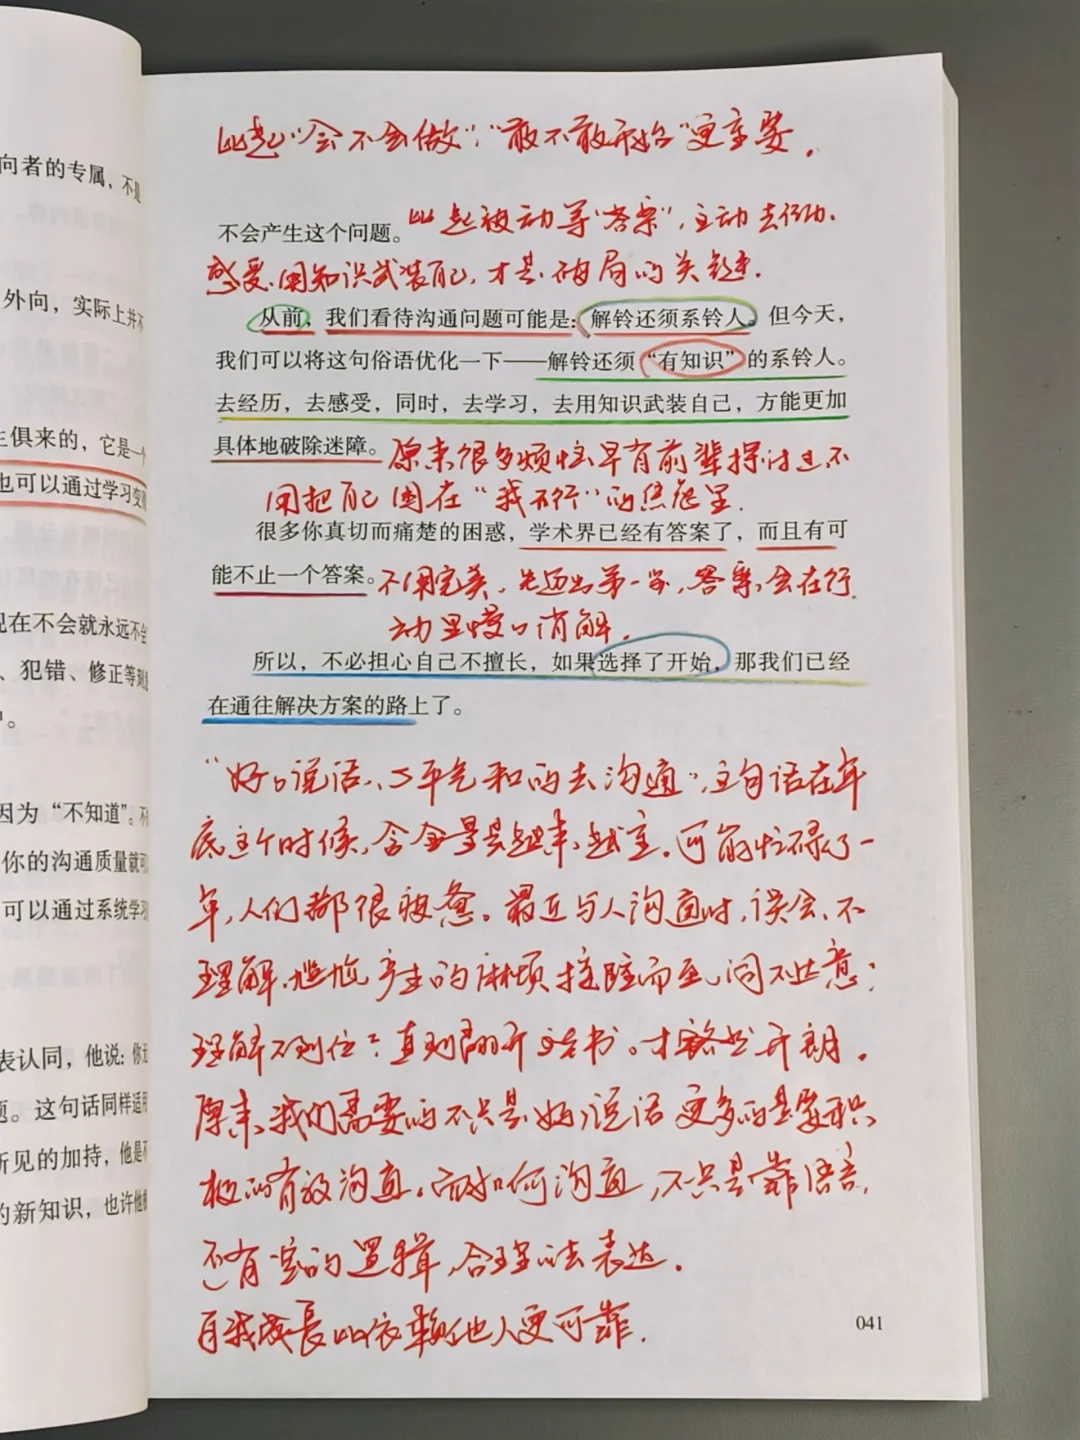 向者的专属，不是
外向，实际上并不
生俱来的，它是一个
也可以通过学习变
现在不会就永远不会
、犯错、修正等
中。
因为“不知道”。不
你的沟通质量就可
可以通过系统学习
表认同，他说：你
题。这句话同样适用
所见的加持，他是不
的新知识，也许他
比起“会不会做”，“敢不敢开始”更重要。
不会产生这个问题。比起被动等“答案”，主动去行动、
感受、用知识武装自己，才是破局的关键。
从前，我们看待沟通问题可能是：解铃还须系铃人。但今天，
我们可以将这句俗语优化一下——解铃还须“有知识”的系铃人。
去经历，去感受，同时，去学习，去用知识武装自己，方能更加
具体地破除迷障。原来很多烦恼早有前辈探讨过，不
用把自己困在“我不行”的焦虑里。
很多你真切而痛楚的困惑，学术界已经有答案了，而且有可
能不止一个答案。不用完美，先迈出第一步，答案会在行
动里慢慢消解。
所以，不必担心自己不擅长，如果选择了开始，那我们已经
在通往解决方案的路上了。
“好好说话，心平气和的去沟通”，这句话在年
底这个时候，含金量是越来越重。可能忙碌了一
年，人们都很疲惫。最近与人沟通时，误会、不
理解、尴尬产生的麻烦接踵而至，词不达意？
理解不到位？直到翻开这书。才豁然开朗。
原来，我们需要的不只是好好说话更多的是要积
极的有效沟通。而如何沟通，不只是靠语言，
还有你的逻辑，合理的去表达。
自我成长比依赖他人更可靠。
041